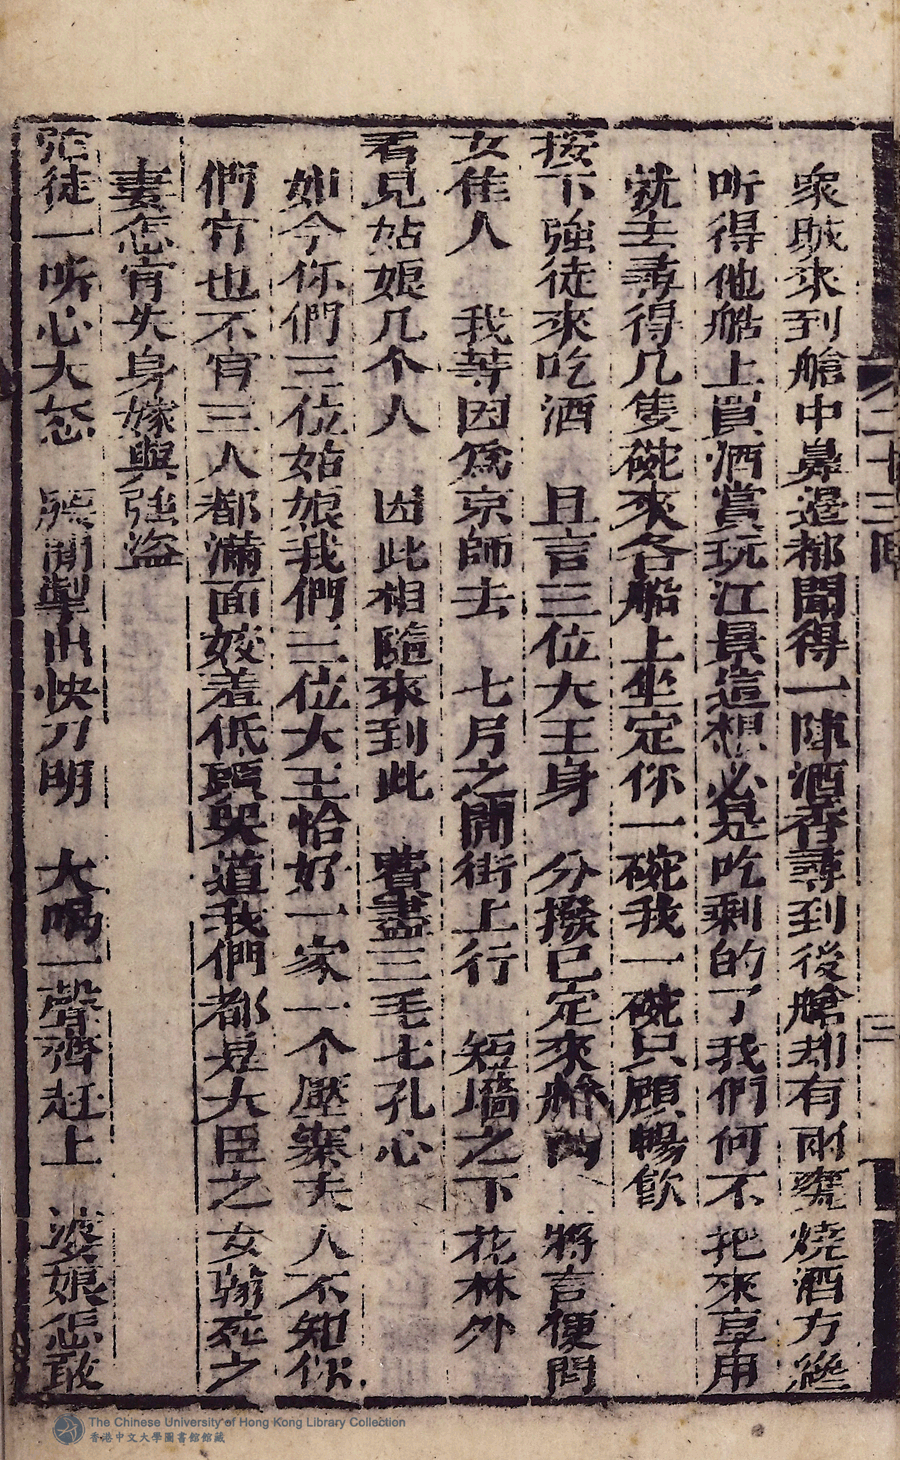 二十三
三
衆賊來到艙中鼻邊都聞得一陣酒香尋到後艙却有兩甕燒酒方纔
听得他船上買酒賞玩江景這想必是吃剩的了我們何不把來享用
就去尋得几隻碗來各船上坐定你一碗我一碗只顧暢飲
按下強徒來吃酒 且言三位大王身 分撥已定來艙內 將言便問
女佳人 我等因爲京師去 七月之間街上行 短墻之下花林外
看見姑娘几个人 因此相隨來到此 費盡三毛七孔心
如今你們三位姑娘我們三位大王恰好一家一个壓寨夫人不知你
們肯也不肯三人都滿面姣羞低頭哭道我們都是大臣之女翰死之
妻怎肯失身嫁與強盜
徒一听心大怒 開掣出快刀明 大喝一聲齊赶上 婆娘怎敢
The Chinese University of Hong Kong Library Collection
香港中文大學圖書館館藏